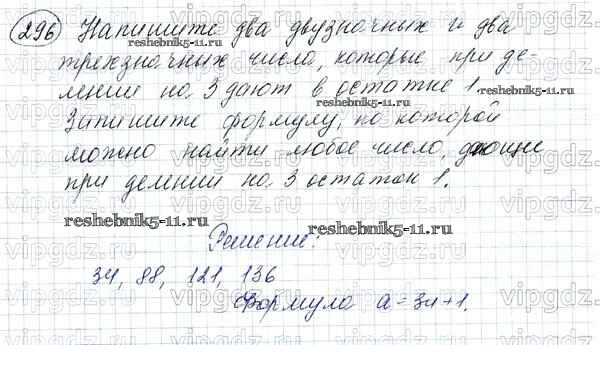 296 Напишите два двузначных и два
reshebnik5-11.ru
трехзначных числа, которые при де-
лении на 3 дают в остатке 1.
reshebnik5-11.ru
Запишите формулу, по которой
можно найти любое число, дающие
при делении на 3 остаток 1.
reshebnik5-11.ru
reshebnik5-11.ru
Решение:
34, 88, 121, 136
Формула a=3n+1.